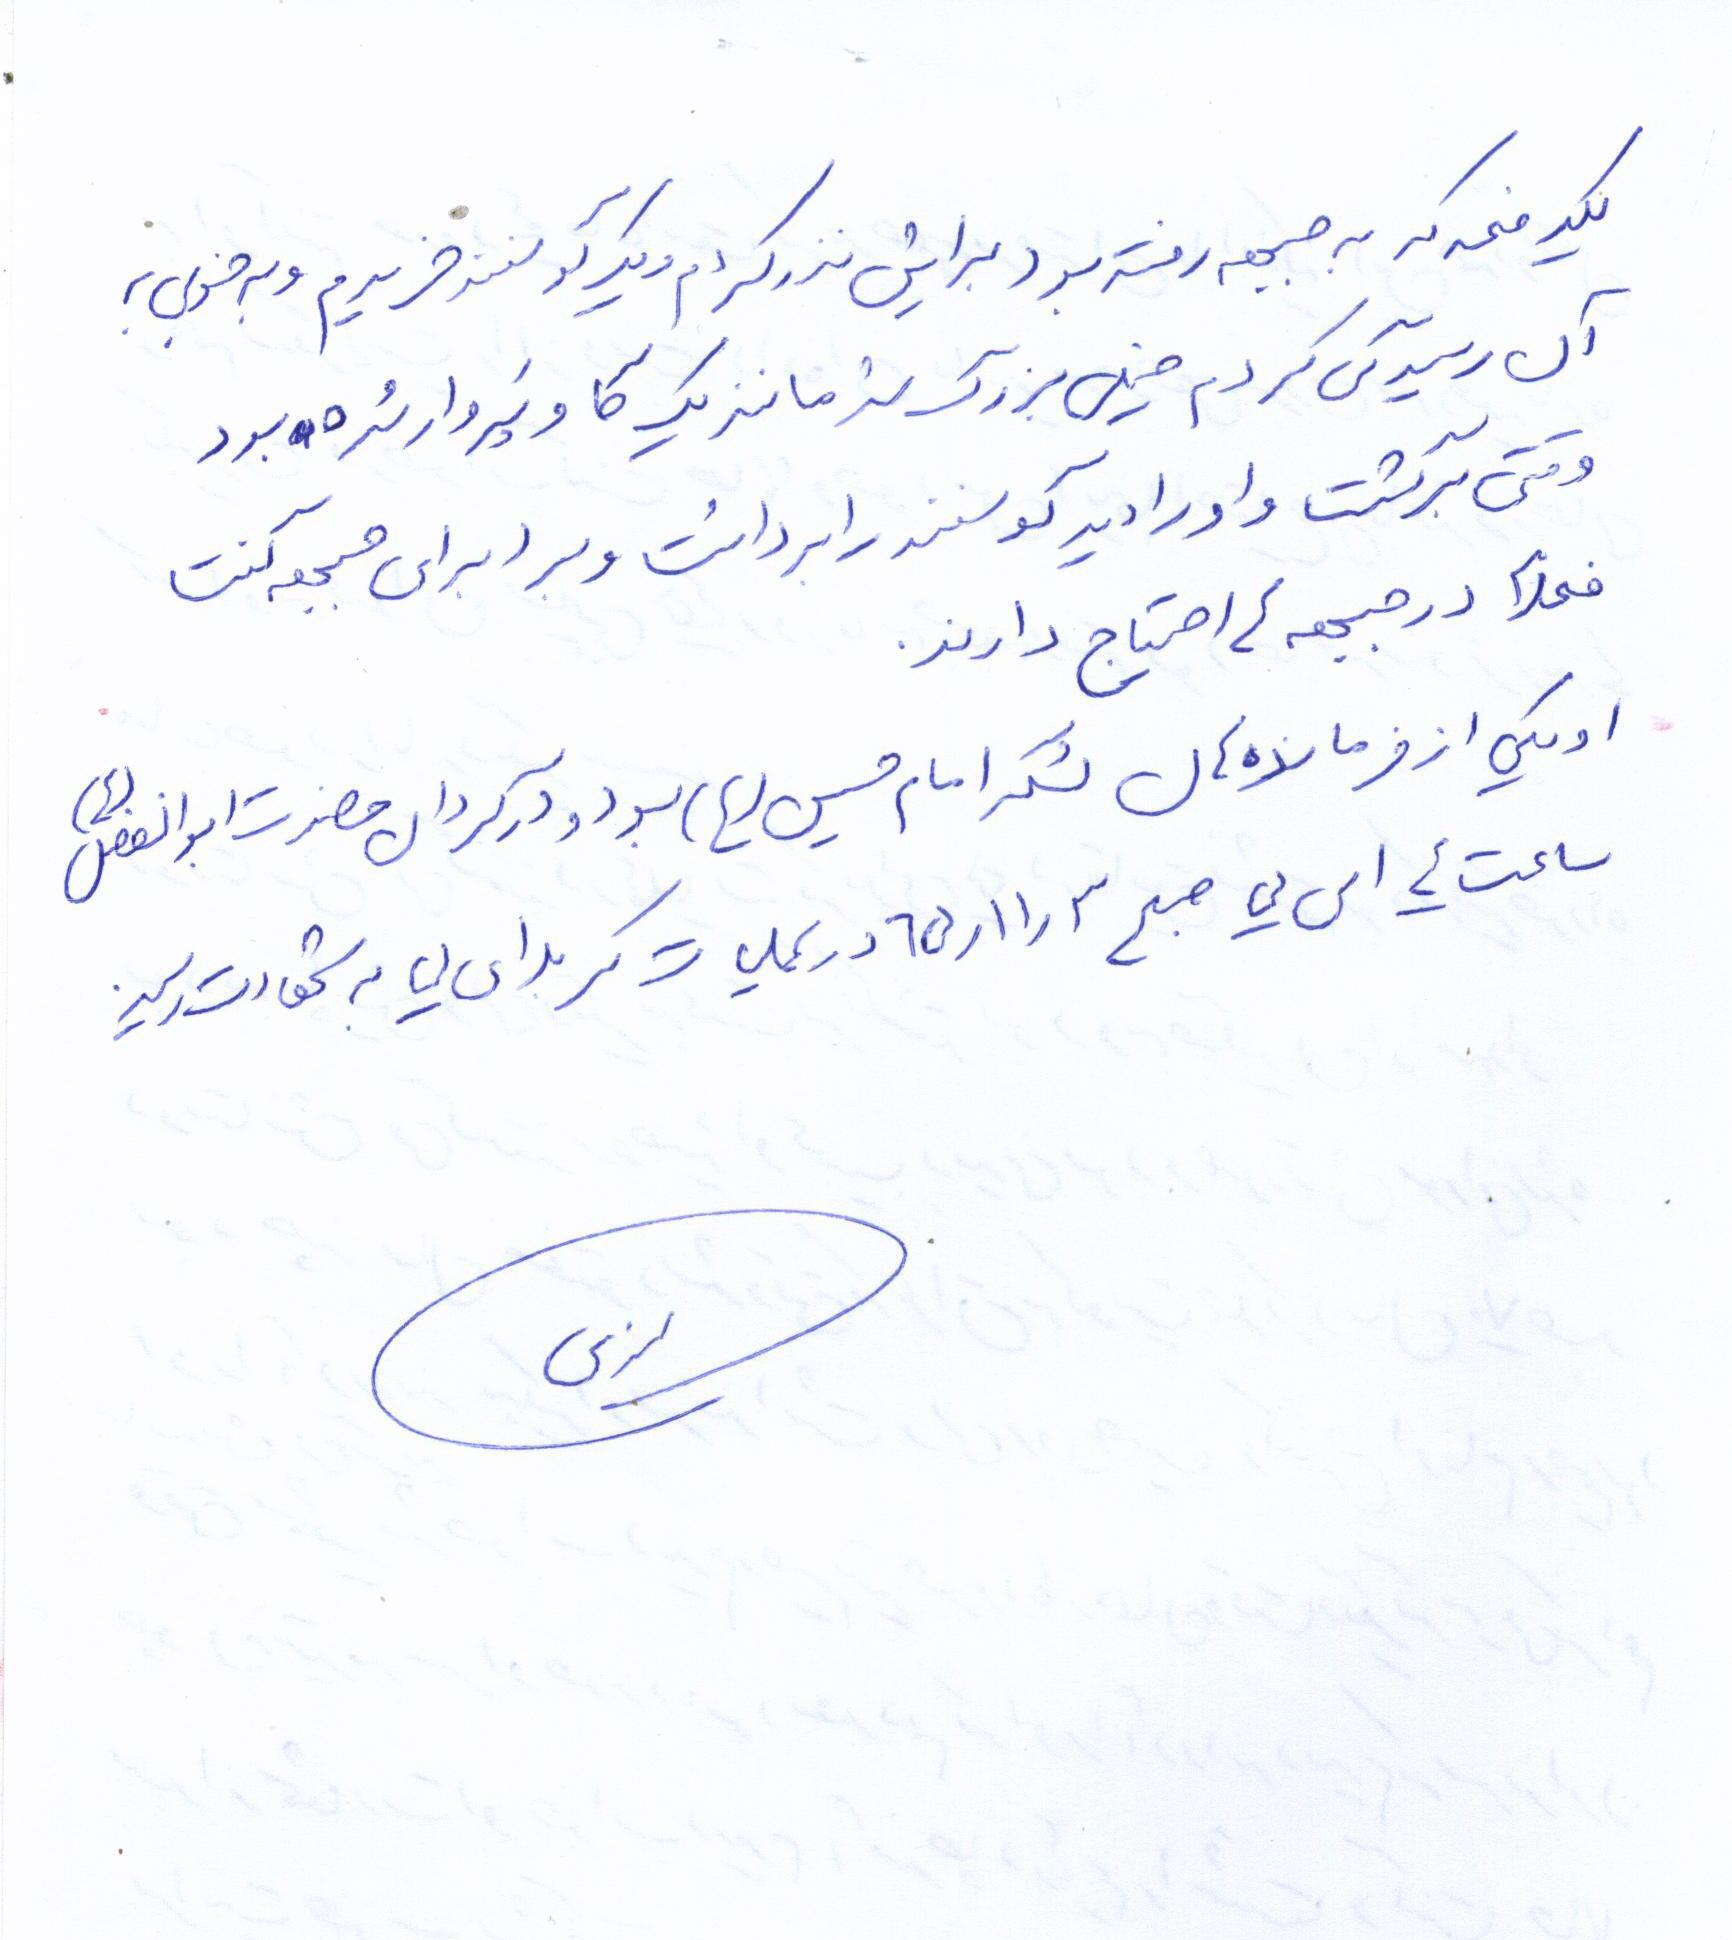 یکدفعه که به جبهه رفته بود برایش نذر کردم و یک گوسفند خریدم و به خوبی به
آن رسیدگی کردم خیلی بزرگ شد مانند یک گاو پروار شده بود
وقتی برگشت و او را دید گوسفند را برداشت و برد برای جبهه گفت
فعلاً در جبهه احتیاج دارند.
او یکی از فرمانده های لشکر امام حسین (ع) بود و در گردان حضرت ابوالفضل (ع)
ساعت صبح ۳ر۱۱ر۶۵ در عملیات کربلای به شهادت رسید.